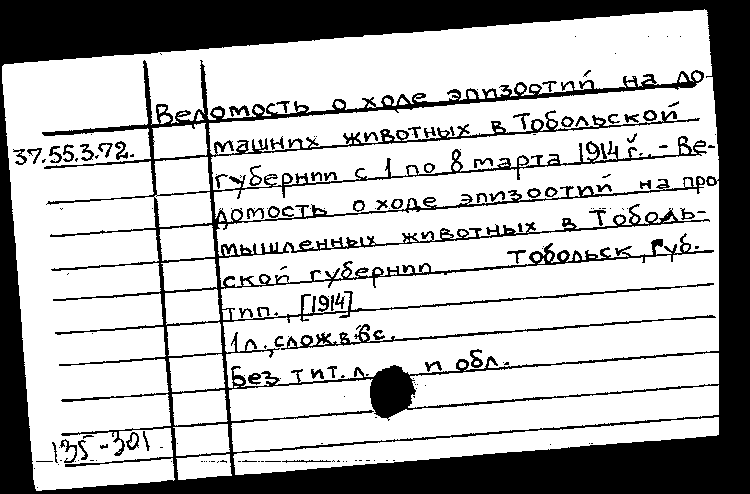 Ведомость о ходе эпизоотий на до-
37.55.3.72. машних животных в Тобольской
губернии с 1 по 8 марта 1914 г. - Ве-
домость о ходе эпизоотий на про
мышленных животных в Тоболь-
ской губернии. Тобольск, Губ.
тип., [1914].
1 л., слож. в 8с.
Без тит. л. и обл.
135-301